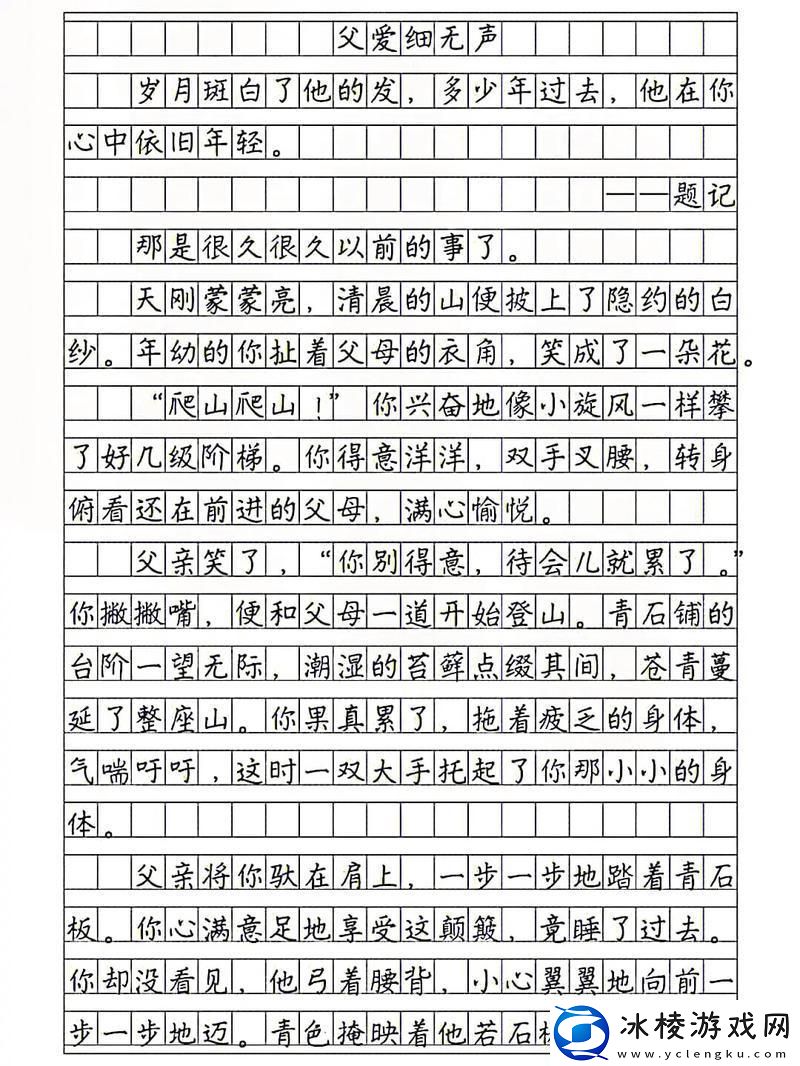 父爱细无声
岁月斑白了他的发，多少年过去，他在你
心中依旧年轻。
——题记
那是很久很久以前的事了。
天刚蒙蒙亮，清晨的山便披上了隐约的白
纱。年幼的你扯着父母的衣角，笑成了一朵花。
“爬山爬山！”你兴奋地像小旋风一样攀
了好几级阶梯。你得意洋洋，双手叉腰，转身
俯看还在前进的父母，满心愉悦。
父亲笑了，“你别得意，待会儿就累了。”
你撇撇嘴，便和父母一道开始登山。青石铺的
台阶一望无际，潮湿的苔藓点缀其间，苍青蔓
延了整座山。你果真累了，拖着疲乏的身体，
气喘吁吁，这时一双大手托起了你那小小的身
体。
父亲将你驮在肩上，一步一步地踏着青石
板。你心满意足地享受这颠簸，竟睡了过去。
你却没看见，他弓着腰背，小心翼翼地向前一
步一步地迈。青色掩映着他若石
冰棱游戏网
www.yclengku.com